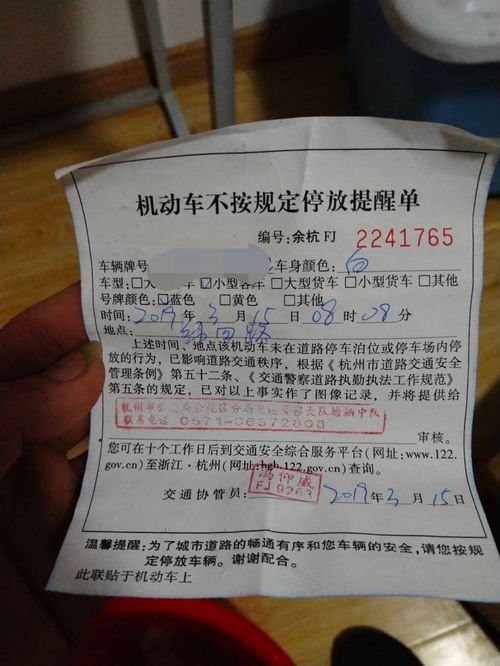 机动车不按规定停放提醒单
编号:余杭 FJ 2241765
车辆牌号 车身颜色: 白
车型:□大 客车 ☑小型客车 □大型货车 □小型货车 □其他
号牌颜色:☑蓝色 □黄色 □其他
时间: 2019 年 3 月 15 日 08 时 08 分
地点:
上述时间、地点该机动车未在道路停车泊位或停车场内停
放的行为,已影响道路交通秩序,根据《杭州市道路交通安全
管理条例》第五十二条、《交通警察道路执勤执法工作规范》
第五条的规定,已对以上事实作了图像记录,并将提供给
杭州市公安局余杭区分局交通警察大队塘栖中队
联系电话 0571-86372808
审核。
您可在十个工作日后到交通安全综合服务平台(网址:www.122.
gov.cn)至浙江·杭州(网址:hgh.122.gov.cn)查询。
交通协管员: FJ 9263 2019 年 3 月 15 日
温馨提醒:为了城市道路的畅通有序和您车辆的安全,请您按规
定停放车辆。谢谢配合。
此联贴于机动车上